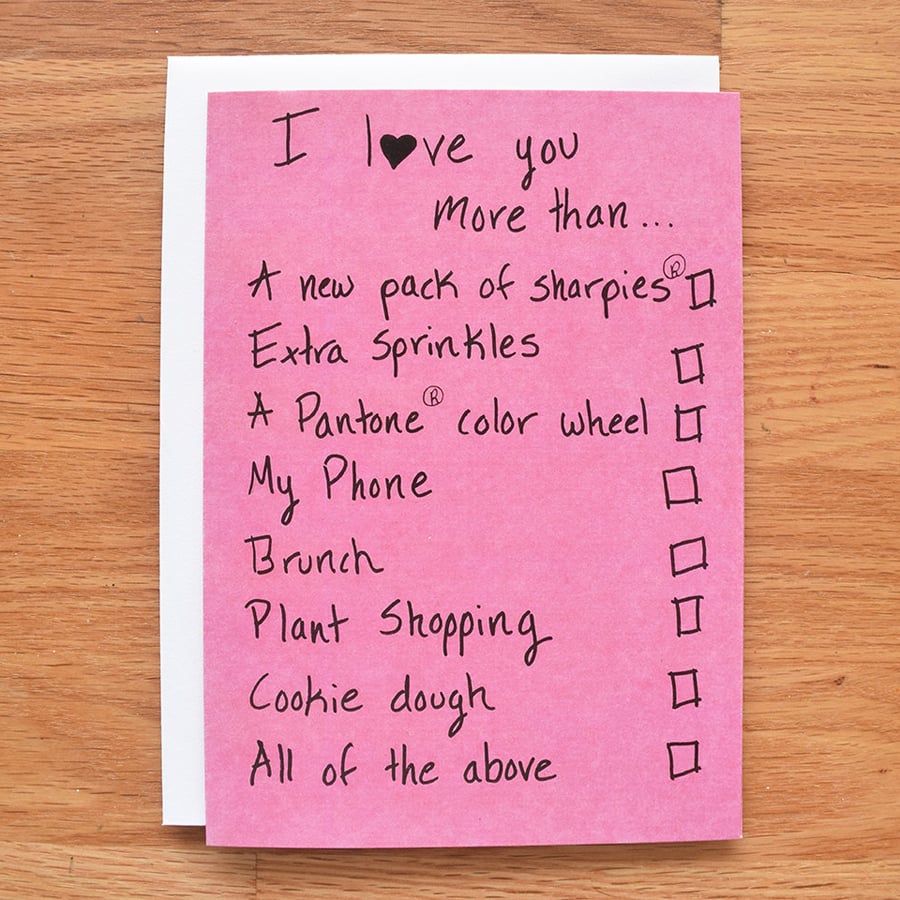 I l♥ve you
more than...
A new pack of sharpies® □
Extra Sprinkles □
A Pantone® color wheel □
My Phone □
Brunch □
Plant Shopping □
Cookie dough □
All of the above □